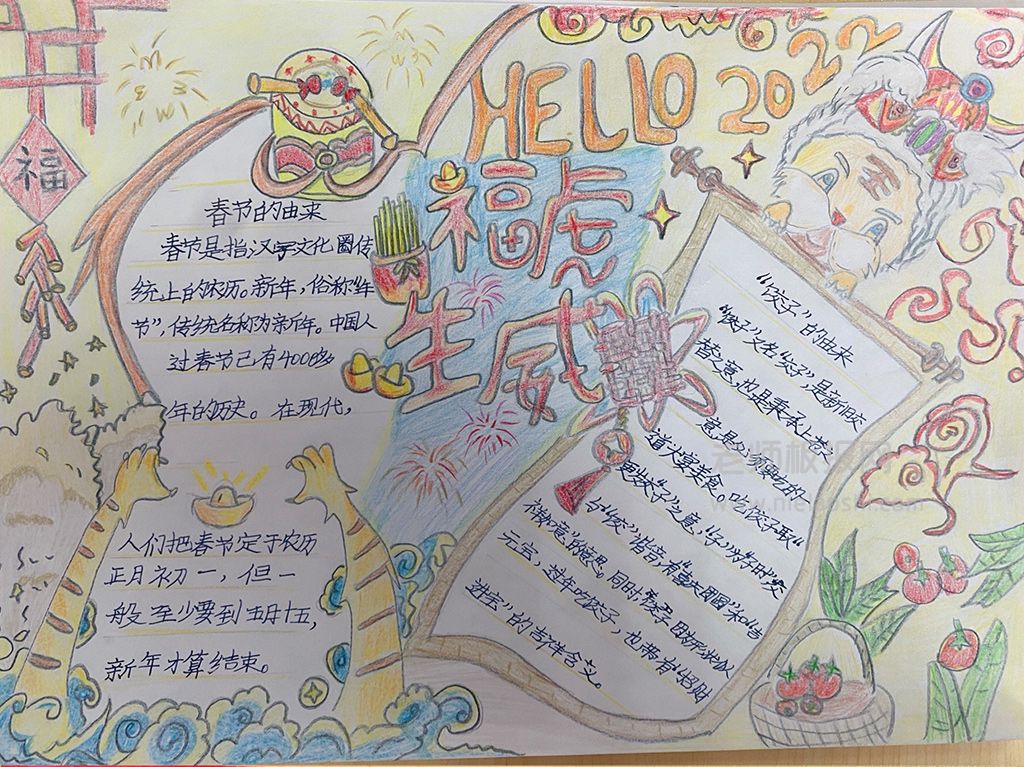 HELLO 2022
福
福虎
生威
春节的由来
春节是指汉字文化圈传
统上的农历。新年,俗称"年
节",传统名称为新年。中国人
过春节已有4000多
年的历史。在现代,
人们把春节定于农历
正月初一,但一
般至少要到五月十五,
新年才算结束。
"饺子"的由来
"饺子"又名"交子",是新旧交
替之意,也是秉承上苍
道火宴美食。吃饺子取"
更岁交子"之意,"子"为"子时"交
与"饺"谐音,有"喜庆团圆"和"吉
祥如意"的意思。同时饺子因为形状似
元宝,过年吃饺子,也带有"招财
进宝"的吉祥含义。
老师板报网